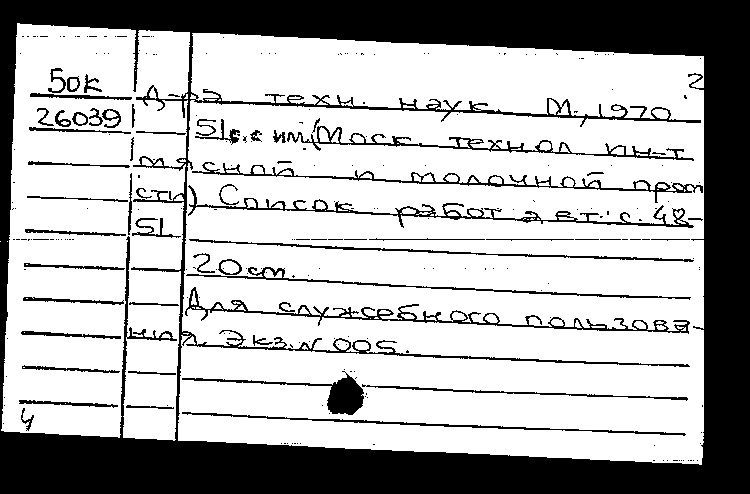 2
50к
д-ра техн. наук. М., 1970.
26039
51с. с ил. (Моск. технол ин-т
мясной и молочной пром
сти) Список работ авт: с. 48-
51.
20 см.
Для служебного пользова-
ния. Экз. N 005.
4